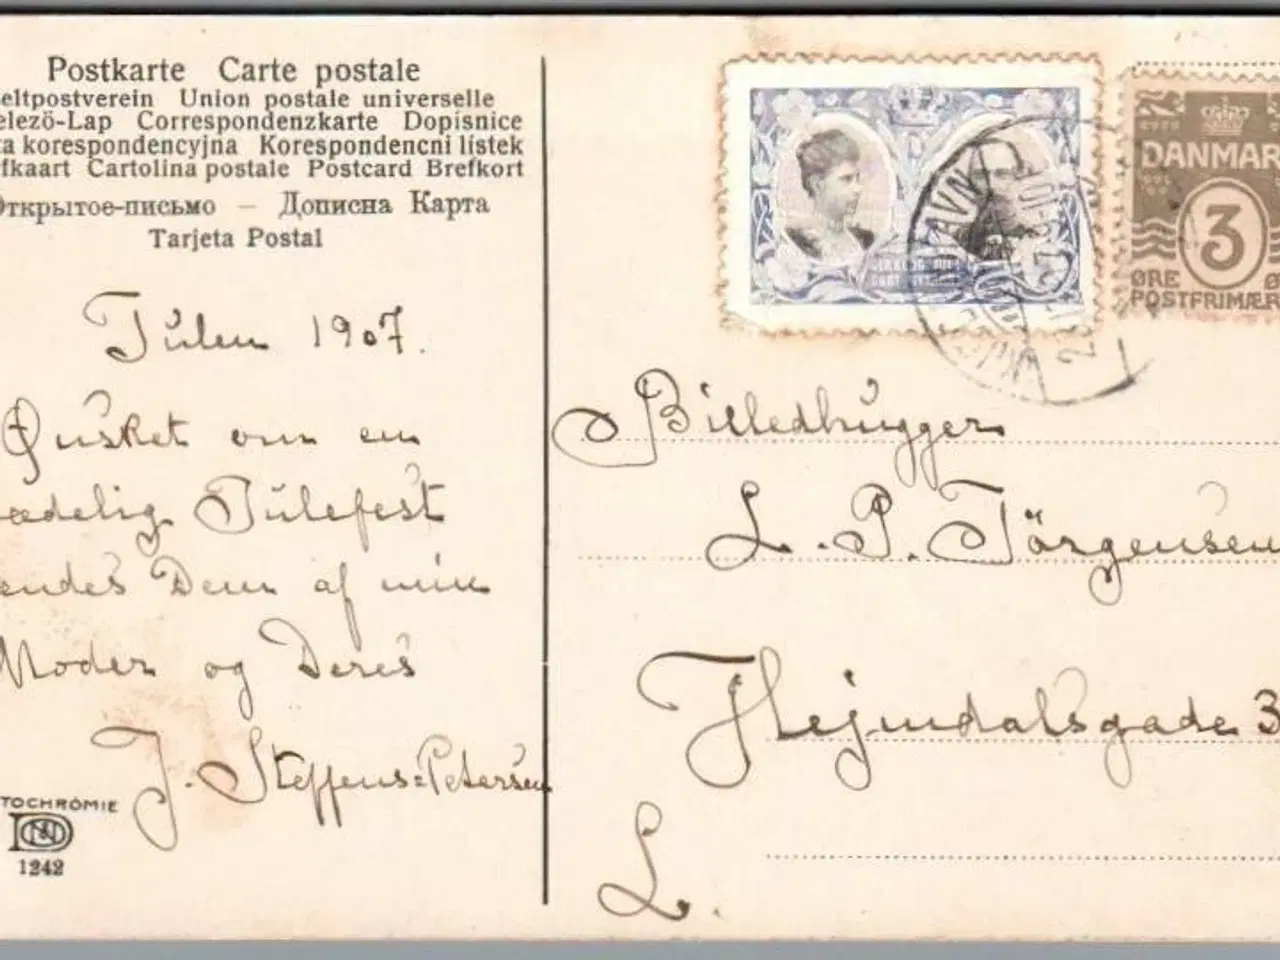 Postkarte Carte postale
eltpostverein Union postale universelle
elezö-Lap Correspondenzkarte Dopisnice
ta korespondencyjna Korespondencni listek
fkaart Cartolina postale Postcard Brefkort
Открытое-письмо – Дописна Карта
Tarjeta Postal
Julen 1907.
Ønsket om en
ædelig Julefest
endes Dem af min
Moder og Deres
J. Steffens=Petersen
TOCHROMIE
1242
DANMAR
3
ØRE Ø
POSTFRIMÆR
Billedhugger
L. P. Jörgensen
Hejmdalsgade 3
L.